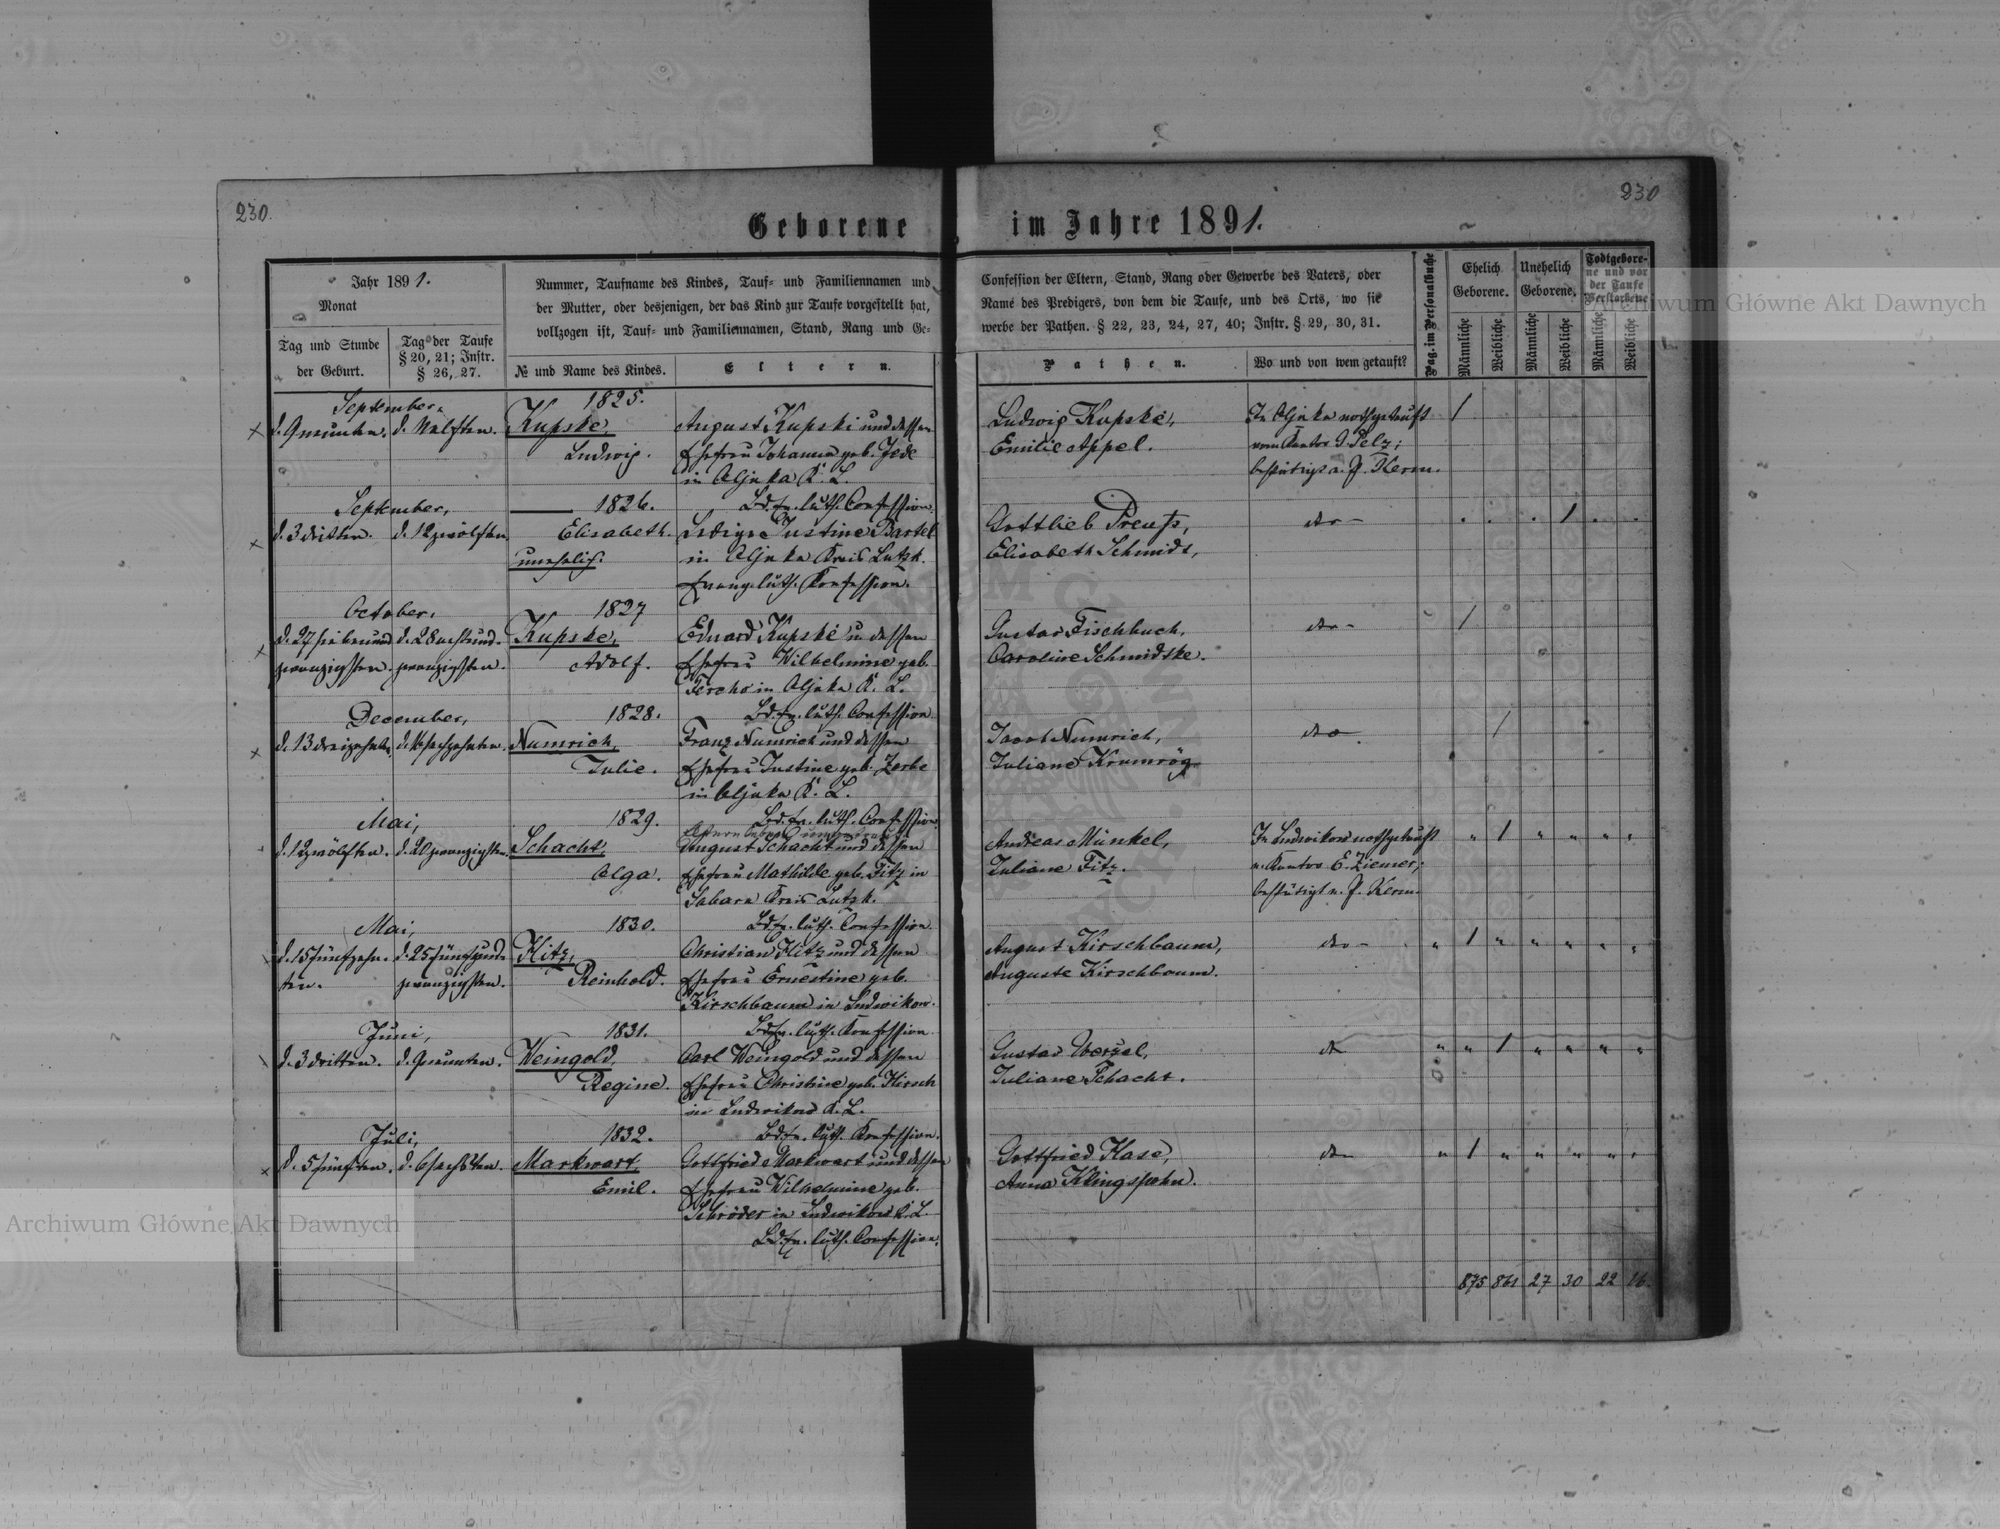 230.
230
Geborene im Jahre 1891.
Jahr 1891.
Monat
Tag und Stunde
der Geburt.
Tag der Taufe
§ 20, 21; Instr.
§ 26, 27.
Nummer, Taufname des Kindes, Tauf- und Familiennamen und
der Mutter, oder desjenigen, der das Kind zur Taufe vorgestellt hat,
vollzogen ist, Tauf- und Familiennamen, Stand, Rang und Ge-
№ und Name des Kindes.
Eltern.
Confession der Eltern, Stand, Rang oder Gewerbe des Vaters, oder
Name des Predigers, von dem die Taufe, und des Orts, wo sie
werbe der Pathen. § 22, 23, 24, 27, 40; Instr. § 29, 30, 31.
Pathen.
Wo und von wem getauft?
Pag. im Personalbuche
Ehelich
Geborene.
Unehelich
Geborene.
Todtgebore-
ne und vor
der Taufe
Verstorbene
Männliche
Weibliche
Männliche
Weibliche
Männliche
Weibliche
September,
d. 9 neunten. d. 12 zwölften.
1825.
Kupske,
Ludwig.
August Kupski und dessen
Ehefrau Johanna geb. Jede
in Aljeka K. L.
Bd. Ev. luth. Confession.
Ludwig Kupske,
Emilie Appel.
In Aljeka nothgetauft
vom Kantor G. Pelz;
bestätigt v. P. Kerm.
1
September,
d. 3 dritten. d. 12 zwölften
1826.
Elisabeth.
unehelich.
Ledige Justine Bartel
in Aljeka Kreis Lutzk.
Evang. luth. Konfession.
Gottlieb Preuß,
Elisabeth Schmidt,
dto -
1
October,
d. 27 siebenund d. 28 achtund-
zwanzigsten. zwanzigsten.
1827
Kupske,
Adolf.
Eduard Kupske u. dessen
Ehefrau Wilhelmine geb.
Tercho in Aljeka K. L.
Bd. Ev. luth. Confession
Gustav Fischbuch,
Caroline Schmidtke.
dto -
1
December,
d. 13 dreizehnten d. 16 sechzehnten.
1828.
Numrich,
Julie.
Franz Numrich und dessen
Ehefrau Justine geb. Zerbe
in Aljeka K. L.
Bd. Ev. luth. Confession.
Jacob Numrich,
Juliane Krumrög
dto
1
Mai,
d. 12 zwölften. d. 20 zwanzigsten.
1829.
Schacht,
Olga.
August Schacht und dessen
Ehefrau Mathilde geb. Fitz in
Sabara Kreis Lutzk.
Bd. Ev. luth. Confession
Andreas Münkel,
Juliane Fitz.
In Ludwikow nothgetauft
v. Kantor E. Ziemer;
bestätigt v. P. Kerm.
1
Mai,
d. 15 fünfzehn- d. 25 fünfund-
ten. zwanzigsten.
1830.
Klitz,
Reinhold.
Christian Klitz und dessen
Ehefrau Ernestine geb.
Kirschbaum in Ludwikow.
Bd. Ev. luth. Konfession
August Kirschbaum,
Auguste Kirschbaum.
dto -
1
Juni,
d. 3 dritten. d. 9 neunten.
1831.
Weingold,
Regine.
Carl Weingold und dessen
Ehefrau Christine geb. Kirsch
in Ludwikow K. L.
Bd. Ev. luth. Konfession.
Gustav Wenzel,
Juliane Schacht.
dto
1
Juli,
d. 5 fünften. d. 6 sechsten.
1832.
Markwart,
Emil.
Gottfried Markwart und dessen
Ehefrau Wilhelmine geb.
Schröder in Ludwikow K. L.
Bd. Ev. luth. Confession.
Gottfried Hase,
Anna Klingspohn.
dto
1
875 861 27 30 22 16.
Archiwum Główne Akt Dawnych
Archiwum Główne Akt Dawnych